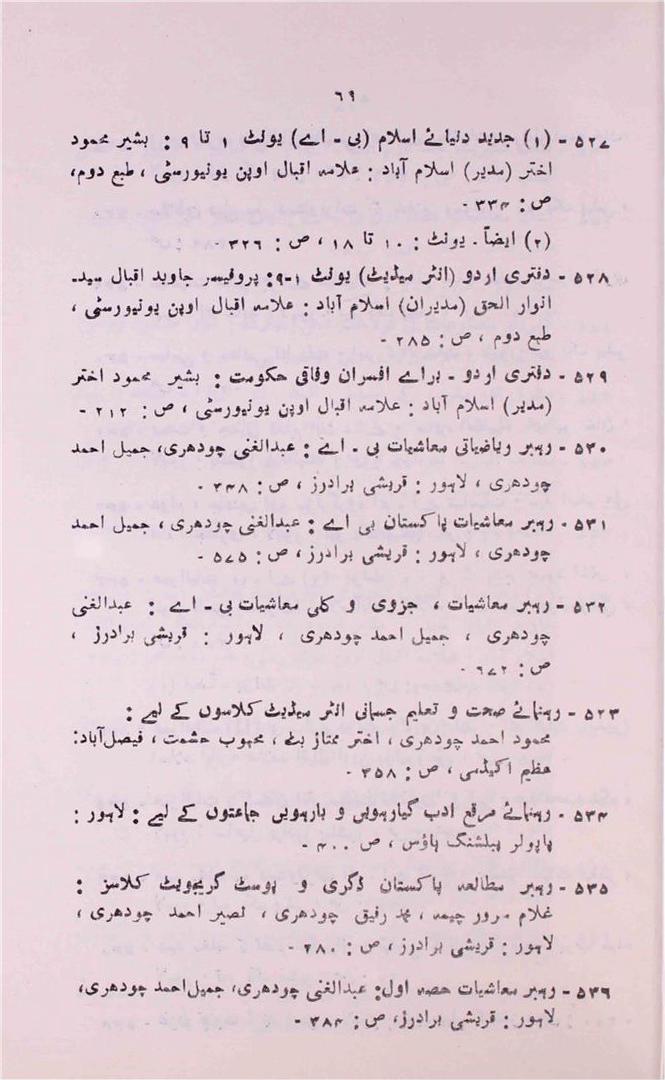 ۶۹
۵۲۷ - (۱) جدید دنیائے اسلام (بی - اے) یونٹ ۱ تا ۹ : بشیر محمود
اختر (مدیر) اسلام آباد : علامہ اقبال اوپن یونیورسٹی ، طبع دوم،
ص : ۳۳۴ -
(۲) ایضاً - یونٹ : ۱۰ تا ۱۸ ، ص : ۳۲۶ -
۵۲۸ - دفتری اردو (انٹر میڈیٹ) یونٹ ۱-۹: پروفیسر جاوید اقبال سید -
انوار الحق (مدیران) اسلام آباد : علامہ اقبال اوپن یونیورسٹی ،
طبع دوم ، ص : ۲۸۵ -
۵۲۹ - دفتری اردو - براے افسران وفاقی حکومت : بشیر محمود اختر
(مدیر) اسلام آباد : علامہ اقبال اوپن یونیورسٹی ، ص : ۲۱۲ -
۵۳۰ - رہبر ریاضیاتی معاشیات بی - اے : عبدالغنی چودھری، جمیل احمد
چودھری ، لاہور : قریشی برادرز ، ص : ۳۴۸ -
۵۳۱ - رہبر معاشیات پاکستان بی اے : عبدالغنی چودھری ، جمیل احمد
چودھری ، لاہور : قریشی برادرز ، ص : ۵۷۵ -
۵۳۲ - رہبر معاشیات ، جزوی و کلی معاشیات بی - اے : عبدالغنی
چودھری ، جمیل احمد چودھری ، لاہور : قریشی برادرز ،
ص : ۶۷۲ -
۵۲۳ - رہنمائے صحت و تعلیم جسمانی انٹر میڈیٹ کلاسوں کے لیے :
محمود احمد چودھری ، اختر ممتاز بٹ ، محبوب حشمت ، فیصل آباد:
عظیم اکیڈمی ، ص : ۳۵۸ -
۵۳۴ - رہنمائے مرقع ادب گیارہویں و بارہویں جماعتوں کے لیے : لاہور :
پاپولر پبلشنگ ہاؤس ، ص ۴۰۰ -
۵۳۵ - رہبر مطالعہ پاکستان ڈگری و پوسٹ گریجویٹ کلاسز :
غلام سرور چیمہ ، محمد رفیق چودھری ، نصیر احمد چودھری ،
لاہور : قریشی برادرز ، ص : ۲۸۰ -
۵۳۶ - رہبر معاشیات حصہ اول: عبدالغنی چودھری، جمیل احمد چودھری،
لاہور : قریشی برادرز، ص : ۳۸۴ -